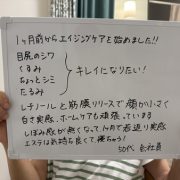 1ヶ月前からエイジングケアを始めました!!
目尻のシワ
くすみ
ちょっとシミ
たるみ
キレイになりたい!
レチノールと筋膜リリースで顔が小さく
白さ実感、ホームケアも頑張っています
しぼみ感が無くなって1ヶ月で若返り実感
エステは気持ち良くて寝ちゃう!
50代 会社員